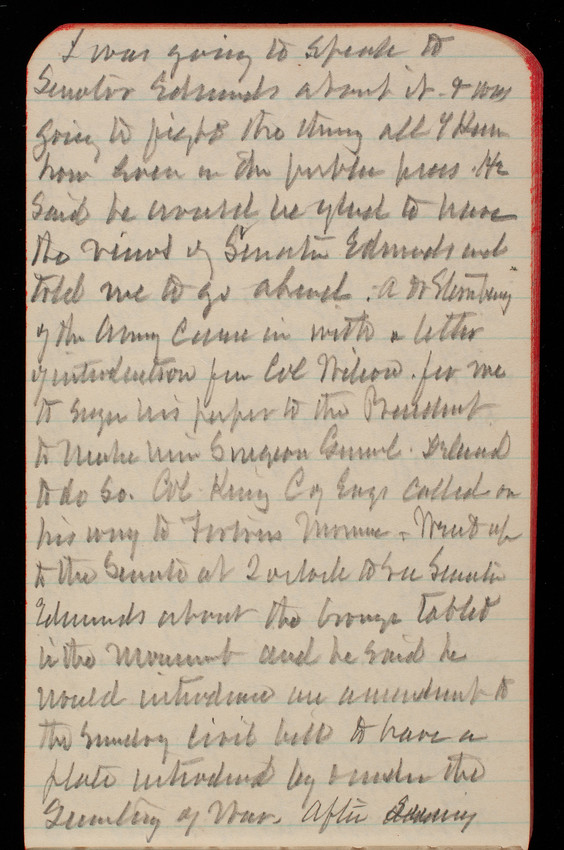 I was going to speak to
Senator Edmunds about it & was
going to fight the thing all I knew
how even in the public press. He
said he would be glad to have
the views of Senator Edmunds and
told me to go ahead. A Dr
of the Army came in with a letter
of introduction from Col Wilson. for me
to sign his paper to the President
to make him Surgeon General. Declined
to do so. Col King C of Engs called on
his way to Fortress Monroe. Went up
to the Senate at 2 oclock to see Senator
Edmunds about the bronze tablet
in the Monument and he said he
would introduce an amendment to
the Sundry civil bill to have a
plate introduced by order the
Secretary of War. After